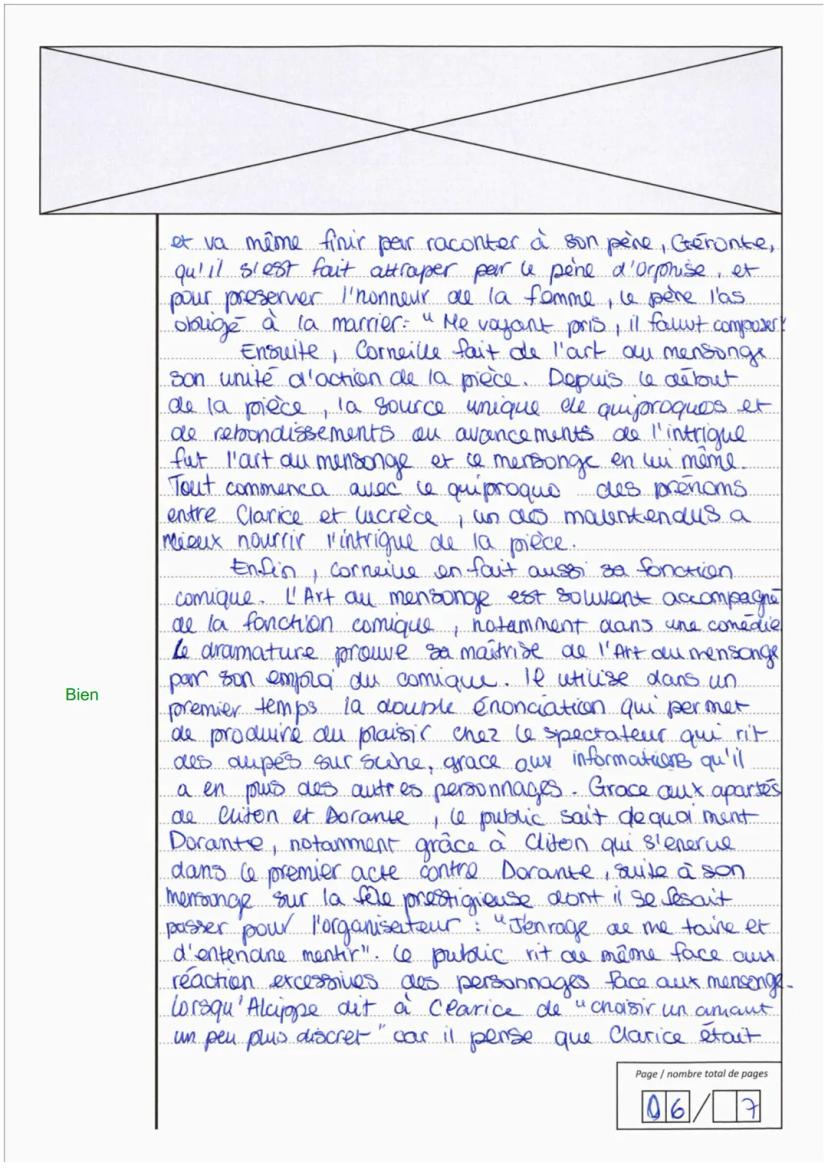 et va même finir par raconter à son père, Géronte,
qu'il s'est fait attraper par le père d'Orphise, et
pour preserver l'honneur de la femme, le père l'as
obligé à la marrier: "Me voyant pris, il fallut composer"
Ensuite, Corneille fait de l'art du mensonge
son unité d'action de la pièce. Depuis le début
de la pièce, la source unique de quiproquos et
de rebondissements ou avancements de l'intrigue
fut l'art du mensonge et ce mensonge en lui même.
Tout commenca avec le quiproquo des prénoms
entre Clarice et Lucrèce, un des malentendus a
mieux nourrir l'intrigue de la pièce.
Enfin, Corneille en fait aussi sa fonction
comique. L'Art du mensonge est souvent accompagné
de la fonction comique, notamment dans une comédie
Le dramature prouve sa maîtrise de l'Art du mensonge
par son emploi du comique. Il utilise dans un
Bien
premier temps la double énonciation qui permet
de produire du plaisir chez le spectateur qui rit
des dupés sur scène, grace aux informations qu'il
a en plus des autres personnages. Grace aux apartés
de Cliton et Dorante, le public sait de quoi ment
Dorante, notamment grâce à Cliton qui s'enerve
dans le premier acte contre Dorante, suite à son
mensonge sur la fête prestigieuse dont il se fesait
passer pour l'organisateur : "J'enrage de me taire et
d'entendre mentir". Le public rit de même face aux
réaction excessives des personnages face aux mensonge.
Lorsqu'Alcippe dit à Clarice de "choisir un amant
un peu plus discret" car il pense que Clarice était
Page / nombre total de pages
06/7